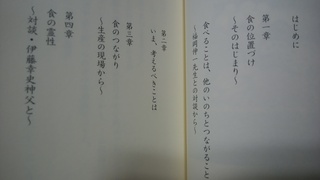 はじめに
第一章
食の位置づけ
～そのはじまり～
食べることは、他のいのちとつながること
～福岡伸一先生との対談から～
第二章
いま、考えるべきことは
第三章
食のつながり
～生産の現場から～
第四章
食の霊性
～対談・伊藤幸史神父と～